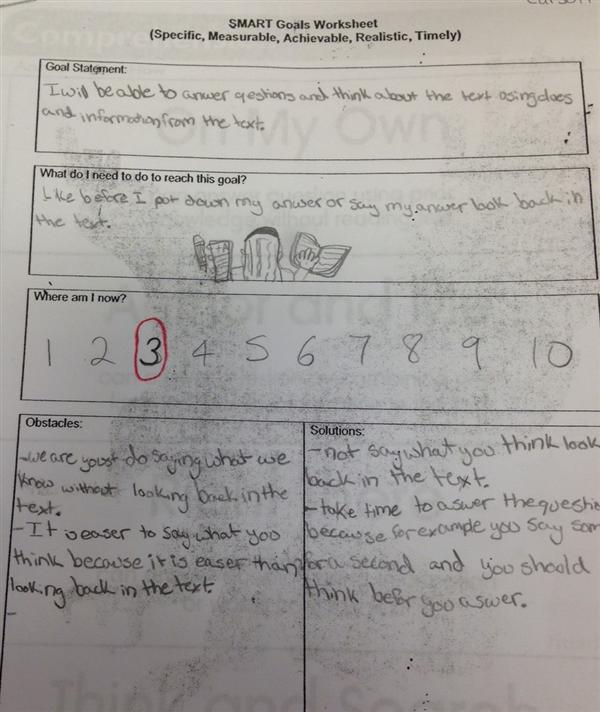 SMART Goals Worksheet
(Specific, Measurable, Achievable, Realistic, Timely)
Goal Statement:
I will be able to anwer qestions and think about the text using
and information from the text.
What do I need to do to reach this goal?
Like before I pot down my anwer or say my anwer look back in
the text.
Where am I now?
1 2 3 4 5 6 7 8 9 10
Obstacles:
-we are do saying what we
know without looking back in the
text.
-It is easer to say what you
think because it is easer than
looking back in the text.
Solutions:
-not say what you think look
back in the text.
-take time to aswer the questio
because for example you say som
for a second and you should
think befor you aswer.
On My Own
Think and Search